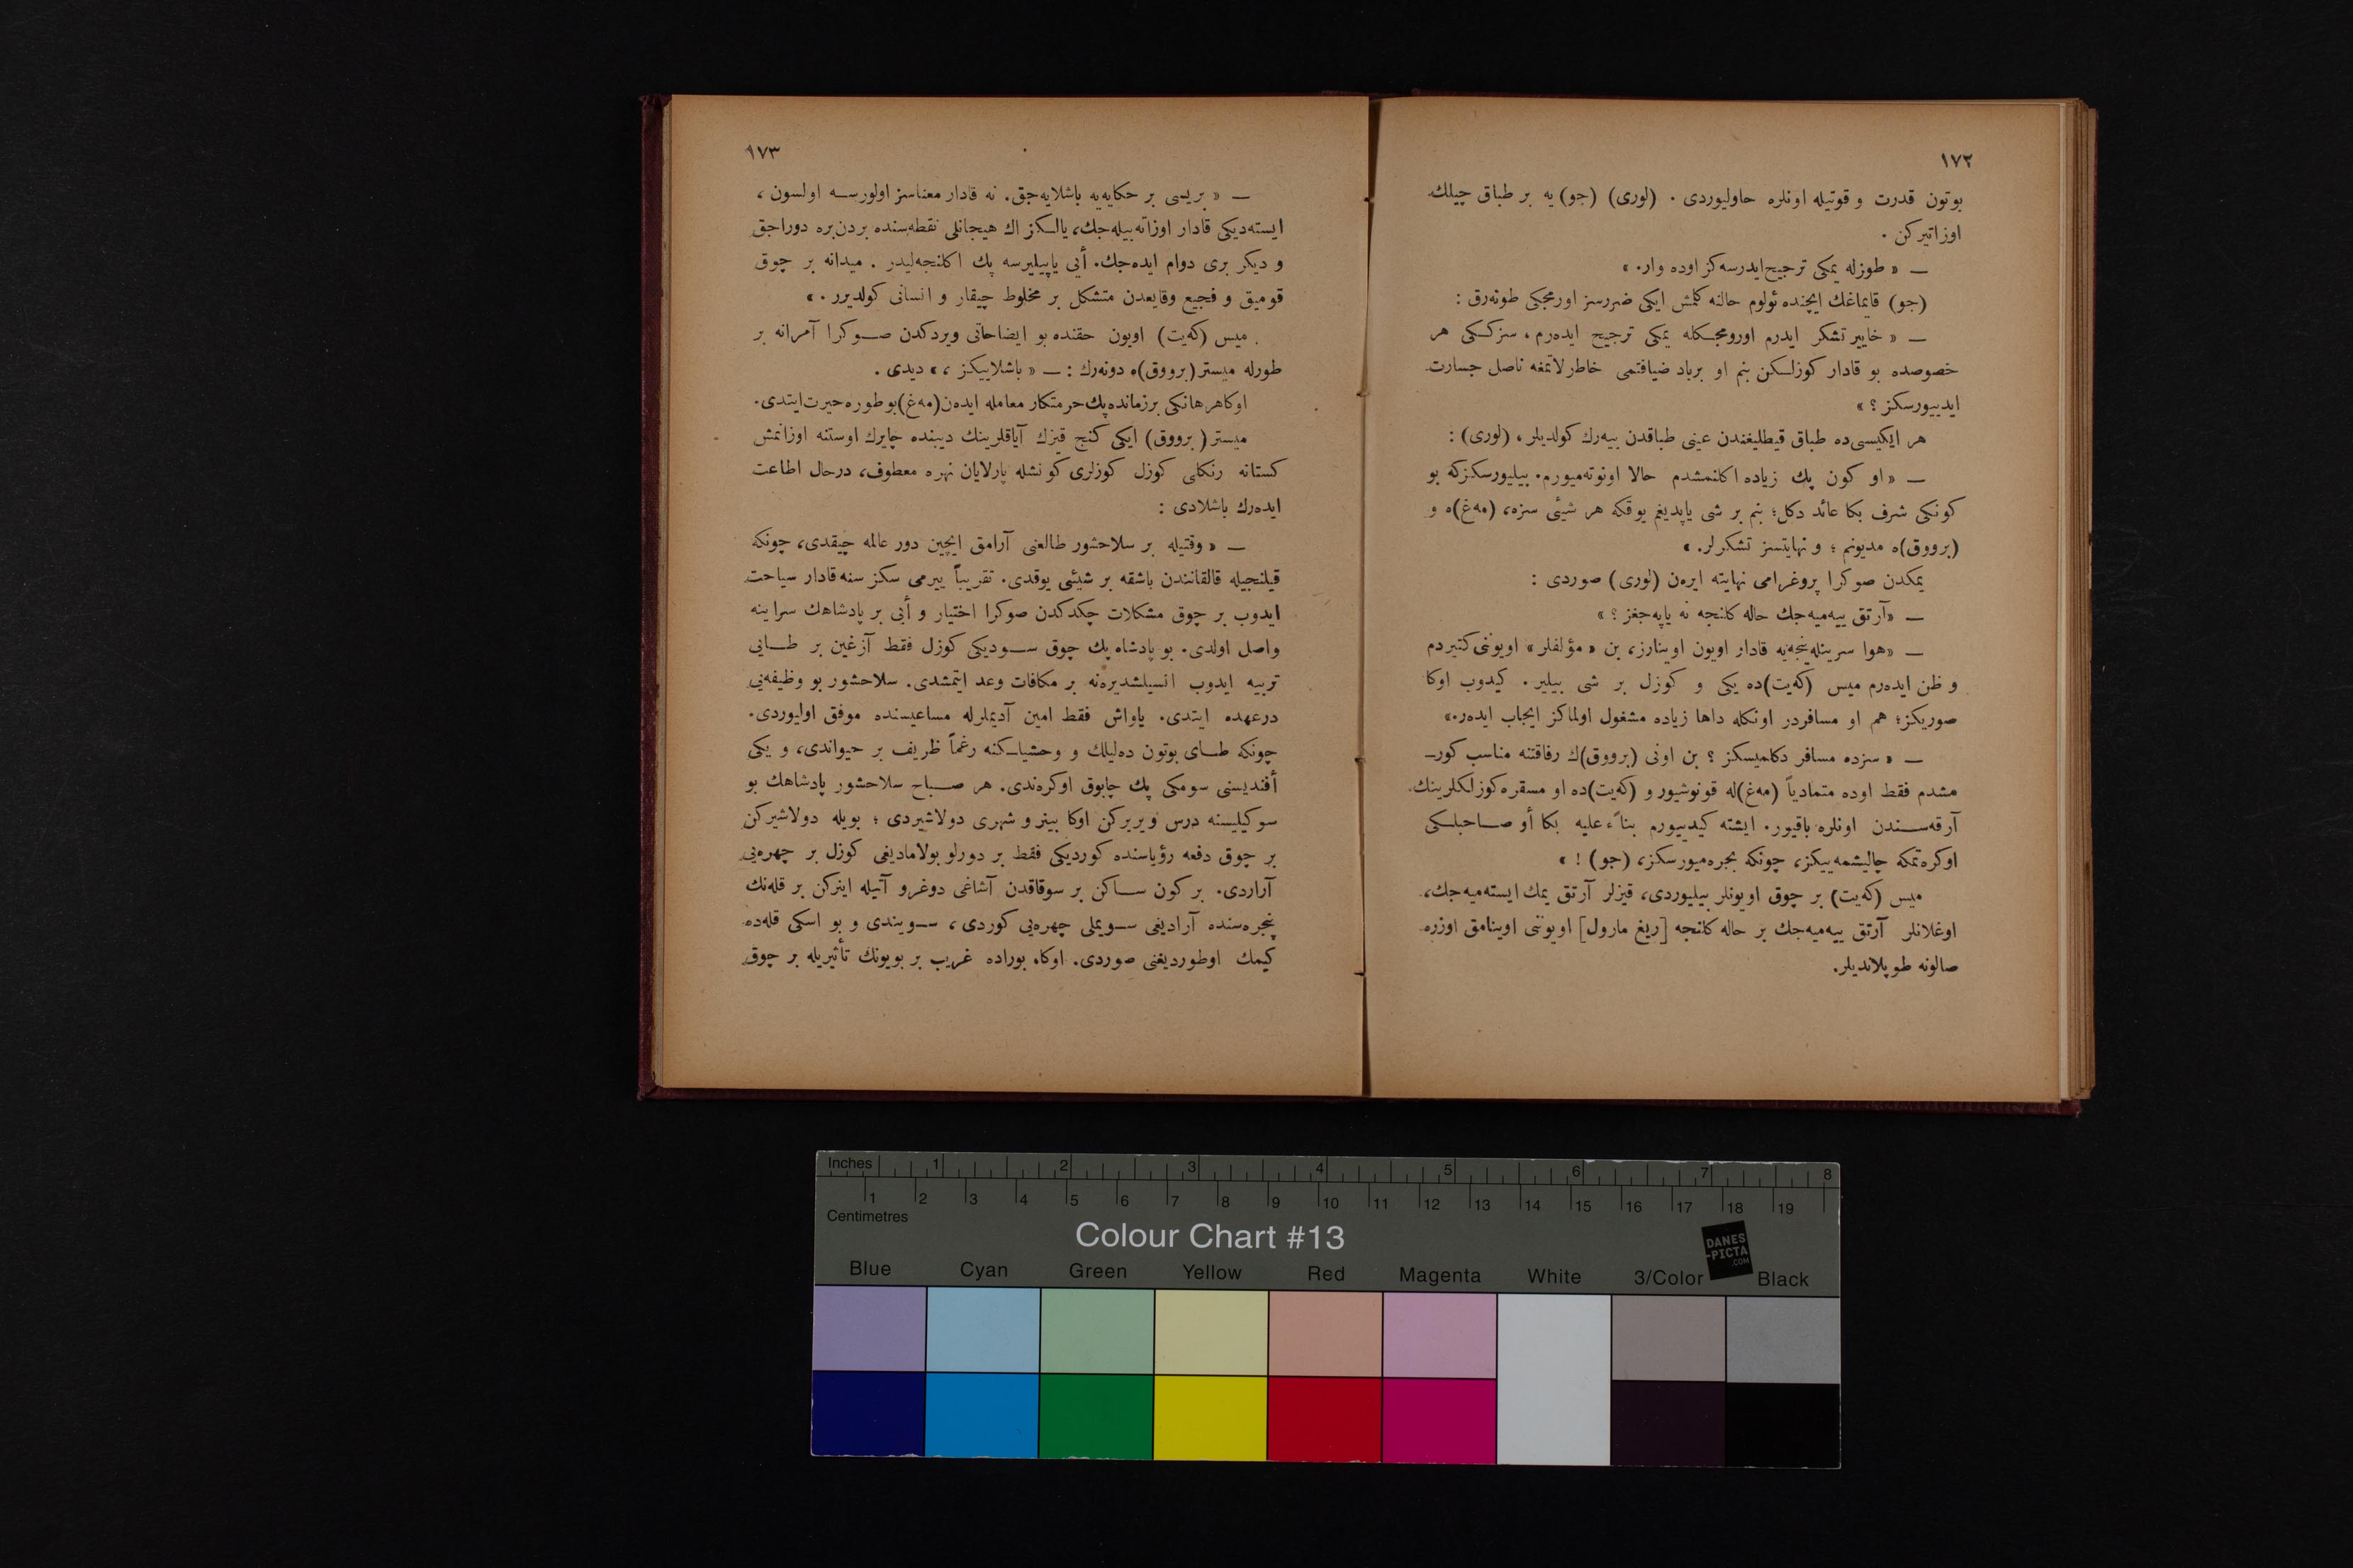 ١٧٢
بوتون قدرت و قوتیله اونلره حاولیوردی . (لوری) (جو) یه بر طباق چیلك
اوزاتیركن .
— « طوزله یمكی ترجیح ایدرسه كز اوده وار. »
(جو) قایماغك ایچنده ئولوم حالنه كلمش ایكی ضررسز اورمجكی طوته‌رق :
— « خاییر تشكر ایدرم اورومجـكله یمكی ترجیح ایده‌رم ، سزكـكی هر
خصوصده بو قادار كوزلـكن بنم او برباد ضیافتمی خاطرلاتمغه ناصل جسارت
ایدییورسكز ؟ »
هر ایكیسی‌ده طباق قیطلیغندن عینی طباقدن ییه‌رك كولدیلر ، (لوری) :
— « او كون پك زیاده اكلنمشدم حالا اونوته‌میورم. بیلیورسكزكه بو
كونكی شرف بكا عائد دكل؛ بنم بر شی یاپدیغم یوقكه هر شیئی سزه، (مه‌غ)ه و
(برووق)ه مدیونم ؛ و نهایتسز تشكرلر. »
یمكدن صوكرا پروغرامی نهایته ایره‌ن (لوری) صوردی :
— «آرتق ییه‌میه‌جك حاله كلنجه نه یاپه‌جغز ؟ »
— «هوا سرینله‌ینجه‌یه قادار اویون اوینارز، بن « مؤلفلر » اویوننی كتیردم
و ظن ایده‌رم میس (كه‌یت)ده یكی و كوزل بر شی بیلیر . كیدوب اوكا
صوریكز؛ هم او مسافردر اونكله داها زیاده مشغول اولماكز ایجاب ایده‌ر.»
— « سزده مسافر دكلمیسكز ؟ بن اونی (برووق)ك رفاقتنه مناسب كور-
مشدم فقط اوده متمادیاً (مه‌غ)له قونوشیور و (كه‌یت)ده او مسقره كوزلكلرینك
آرقه‌سـندن اونلره باقیور. ایشته كیدییورم بناءً علیه بكا أو صـاحبلـكی
اوكره‌تمكه چالیشمه‌ییكز، چونكه بجره‌میورسكز، (جو) ! »
میس (كه‌یت) بر چوق اویونلر بیلیوردی، قیزلر آرتق یمك ایسته‌میه‌جك،
اوغلانلر آرتق ییه‌میه‌جك بر حاله كلنجه [ریغ مارول] اویوننی اوینامق اوزره
صالونه طوپلاندیلر.
١٧٣
— « بریسی بر حكایه‌یه باشلایه‌جق. نه قادار معناسز اولورسـه اولسون ،
ایسته‌دیكی قادار اوزاته‌بیله‌جك، یالـكز اك هیجانلی نقطه‌سنده بردن‌بره دوراجق
و دیكر بری دوام ایده‌جك. أیی یاپیلیرسه پك اكلنجه‌لیدر . میدانه بر چوق
قومیق و فجیع وقایعدن متشكل بر مخلوط چیقار و انسانی كولدیرر . »
میس (كه‌یت) اویون حقنده بو ایضاحاتی ویردكدن صـوكرا آمرانه بر
طورله میستر (برووق)ه دونه‌رك : — « باشلاییكز ، » دیدی .
اوكا هر هانكی بر زمانده پك حرمتكار معامله ایده‌ن (مه‌غ) بو طوره حیرت ایتدی.
میستر ( برووق) ایكی كنج قیزك آیاقلرینك دیبنده چایرك اوستنه اوزانمش
كستانه رنكلی كوزل كوزلری كونشله پارلایان نهره معطوف، درحال اطاعت
ایده‌رك باشلادی :
— « وقتیله بر سلاحشور طالعنی آرامق ایچین دور عالمه چیقدی، چونكه
قیلنجیله قالقانندن باشقه بر شیئی یوقدی. تقریباً ییرمی سكز سنه قادار سیاحت
ایدوب بر چوق مشكلات چكدكدن صوكرا اختیار و أیی بر پادشاهك سراینه
واصل اولدی. بو پادشاه پك چوق سـودیكی كوزل فقط آزغین بر طـایی
تربیه ایدوب انسیلشدیره‌نه بر مكافات وعد ایتمشدی. سلاحشور بو وظیفه‌یی
درعهده ایتدی. یاواش فقط امین آدیملرله مساعیسنده موفق اولیوردی.
چونكه طـای بوتون ده‌لیلك و وحشیلـكنه رغماً ظریف بر حیواندی، و یكی
أفندیسنی سومكی پك چابوق اوكره‌ندی. هر صـباح سلاحشور پادشاهك بو
سوكیلیسنه درس ویریركن اوكا بینر و شهری دولاشیردی ؛ بویله دولاشیركن
بر چوق دفعه رؤیاسنده كوردیكی فقط بر دورلو بولامادیغی كوزل بر چهره‌یی
آراردی. بر كون سـاكن بر سوقاقدن آشاغی دوغرو آتیله اینركن بر قله‌نك
پنجره‌سنده آرادیغی سـویملی چهره‌یی كوردی ، سـویندی و بو اسكی قله‌ده
كیمك اوطوردیغنی صوردی. اوكا، بوراده غریب بر بویونك تأثیریله بر چوق
Inches 1 2 3 4 5 6 7 8
1 2 3 4 5 6 7 8 9 10 11 12 13 14 15 16 17 18 19
Centimetres
Colour Chart #13
DANES
-PICTA
.COM
Blue Cyan Green Yellow Red Magenta White 3/Color Black